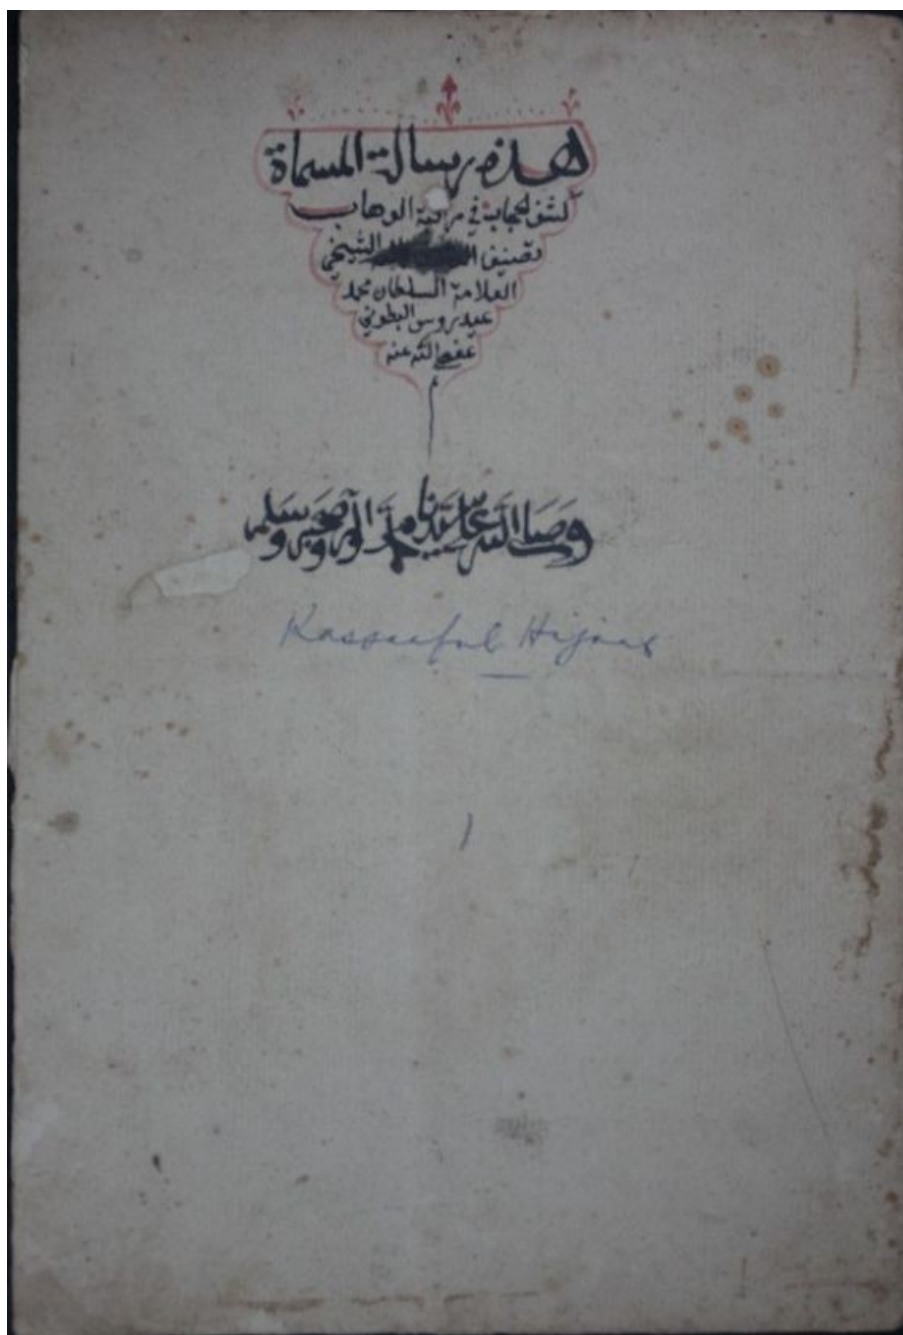 هذه رسالة المسماة
كشف الحجاب في مراقبة الوهاب
تصنيف الشيخ
العلامة السلطان محمد
عيدروس البطوني
عفى الله عنه
وصلى الله على سيدنا محمد وآله وصحبه وسلم
Kassaaful Hijaab
١